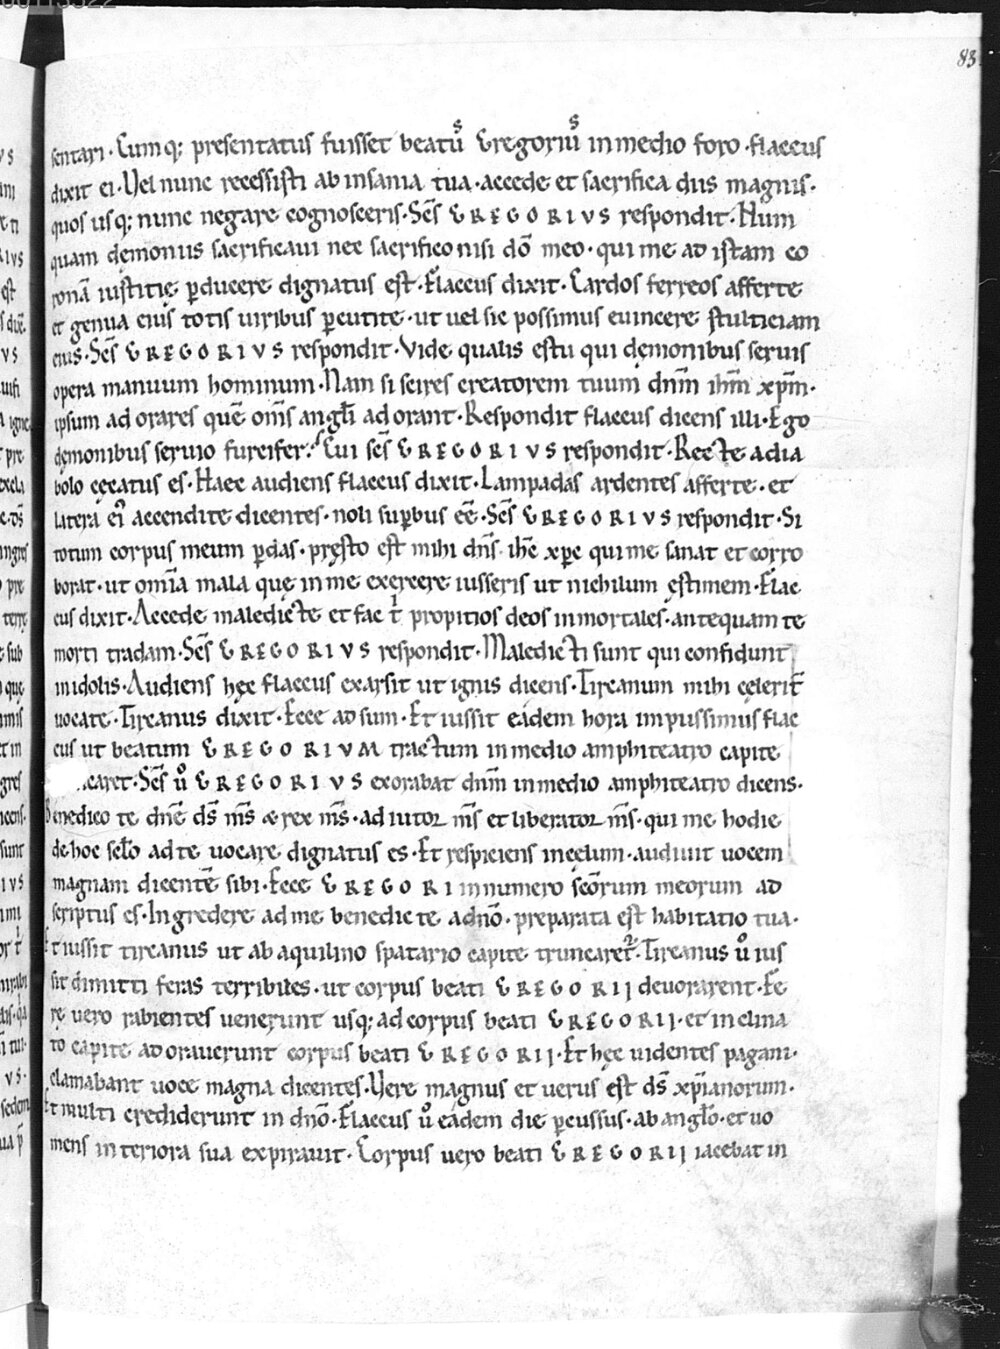 83
sentari · Cumq; presentatus fuisset beatus Gregorius in medio foro · flaccus
dixit ei · Uel nunc recessisti ab insania tua · accede et sacrifica diis magnis ·
quos usq; nunc negare cognosceris · Scs̄ GREGORIVS respondit · Num
quam dęmoniis sacrificaui nec sacrifico nisi dō meo · qui me ad istam co
ronā iustitię ꝑducere dignatus est · Flaccus dixit · Cardos ferreos afferte
et genua eius totis uiribus ꝑcutite · ut uel sic possimus euincere stulticiam
eius · Scs̄ GREGORIVS respondit · Vide qualis es tu qui dęmonibus seruis
opera manuum hominum · Nam si scires creatorem tuum dnm̄ ihm̄ xpm̄ ·
ipsum adorares quē oms̄ angli̅ adorant · Respondit flaccus dicens illi · Ego
dęmonibus seruio furcifer? Cui scs̄ GREGORIVS respondit · Recte a dia
bolo cęcatus es · Haec audiens flaccus dixit · Lampadas ardentes afferte · et
latera ei᾿ accendite dicentes · noli suꝑbus eē · Scs̄ GREGORIVS respondit · Si
totum corpus meum ꝑdas · pręsto est mihi dns̄ ihc̄ xpc̄ qui me sanat et corro
borat · ut omīa mala quę in me exercere iusseris ut nichilum ęstimem · Flac
cus dixit · Accede maledicte et fac t̍ propitios deos inmortales · antequam te
morti tradam · Scs̄ GREGORIVS respondit · Maledicti sunt qui confidunt
in idolis · Audiens hęc flaccus exarsit ut ignis dicens · Tircanum mihi cęlerit̄
uocate · Tircanus dixit · Ecce adsum · Et iussit eadem hora impiissimus flac
cus ut beatum GREGORIVM tractum in medio amphiteatro capite
caret · Scs̄ uͦ GREGORIVS exorabat dnm̄ in medio amphiteatro dicens ·
Benedico te dnē ds̄ ms̄ & rex ms̄ · adiutor ms̄ et liberator ms̄ · qui me hodie
de hoc sclo̅ ad te uocare dignatus es · Et respiciens in cęlum · audiuit uocem
magnam dicentē sibi · Ecce GREGORI in numero scōrum meorum ad
scriptus es · Ingredere ad me benedicte a dnō · preparata est habitatio tua ·
Et iussit tircanus ut ab aquilino spatario capite truncaret᷑ · Tircanus uͦ ius
sit dimitti feras terribiles · ut corpus beati GREGORIJ deuorarent · Fe
rę uero rabientes uenerunt usq; ad corpus beati GREGORIJ · et inclina
to capite adorauerunt corpus beati GREGORIJ · Et hęc uidentes pagani ·
clamabant uoce magna dicentes · Uere magnus et uerus est ds̄ xp̅ianorum ·
Et multi crediderunt in dnō · Flaccus uͦ eadem die ꝑcussus · ab anglo̅ · et uo
mens interiora sua expirauit · Corpus uero beati GREGORIJ iacebat in